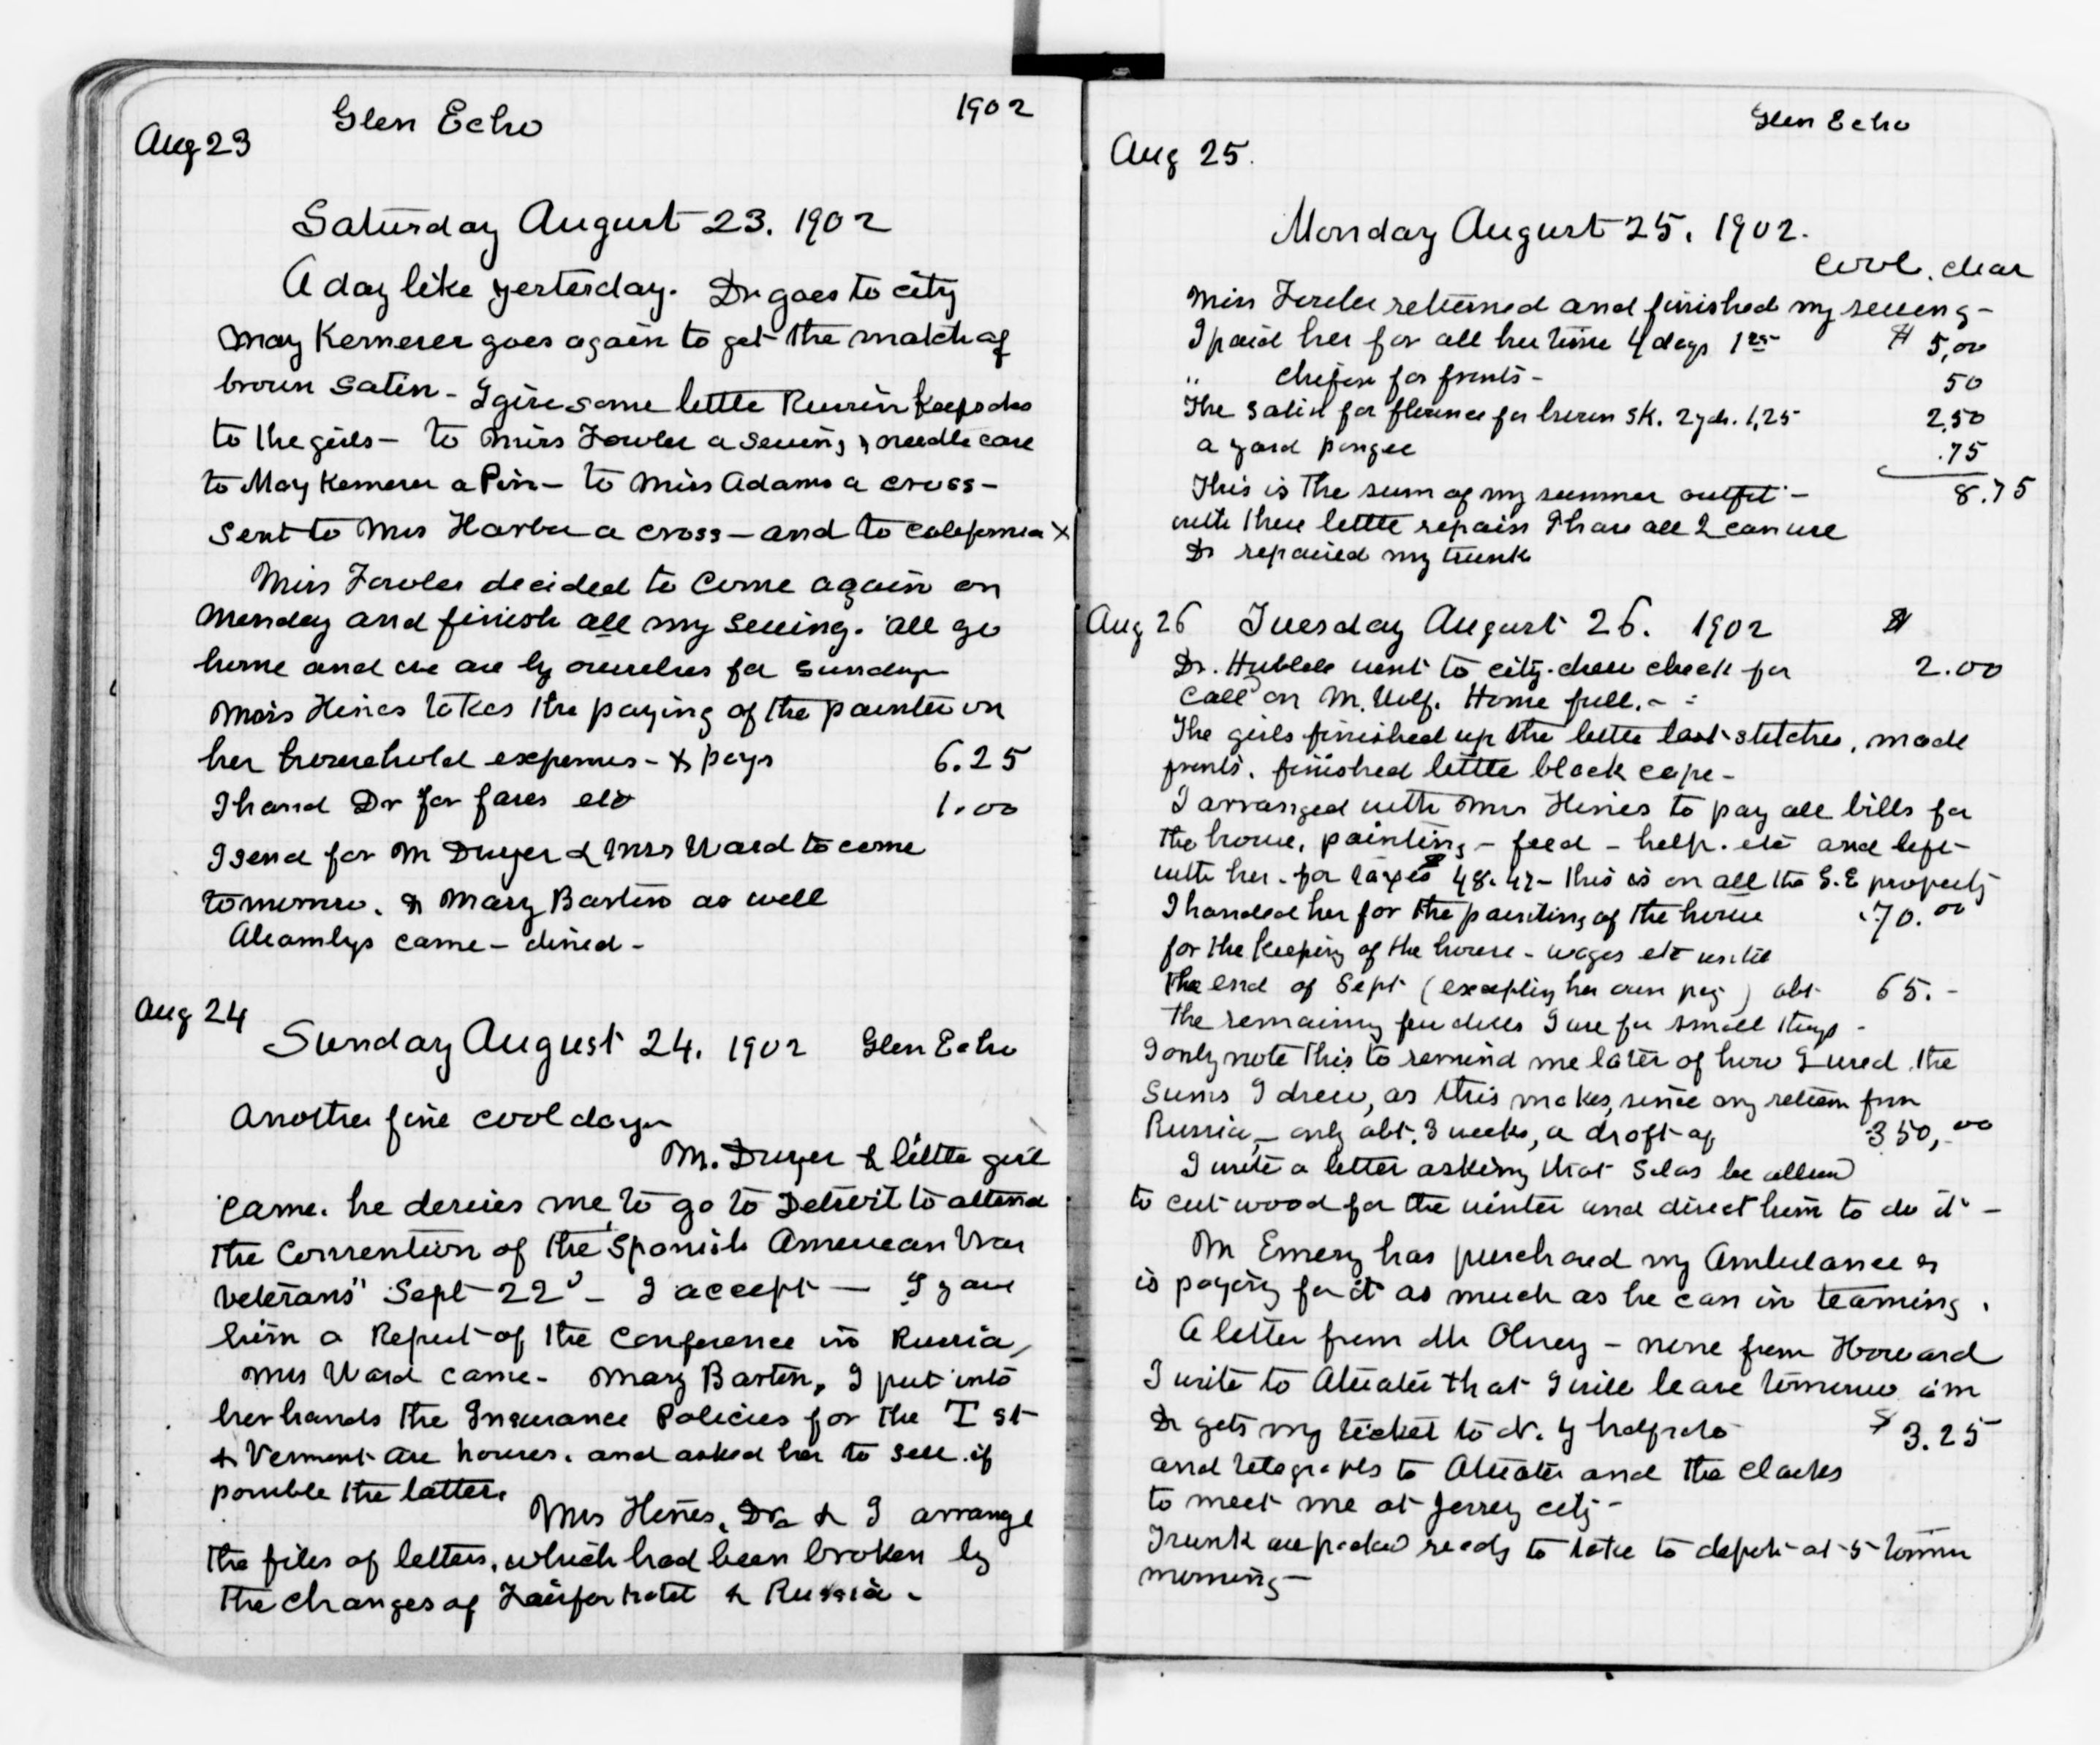 Glen Echo 1902
Aug 23
Saturday August 23. 1902
A day like yesterday. Dr goes to city
May Kemerer goes again to get the match of
brown satin - I give some little Russian keepsakes
to the girls - to Miss Fowler a sewing & needle case
to May Kemerer a Pin - to Miss Adams a cross -
sent to Mrs Harbu a cross - and to California X
Miss Fowler decided to come again on
Monday and finish all my sewing. All go
home and we are by ourselves for Sunday
Mrs Hines takes the paying of the painter on
her household expenses - & pays 6.25
I hand Dr for fares etc 1.00
I send for Mr Dwyer & Mrs Ward to come
tomorrow. & Mary Barton as well
came - dined -
Aug 24
Sunday August 24. 1902 Glen Echo
Another fine cool day
Mr. Dwyer & little girl
came. he desires me to go to Detroit to attend
the Convention of the "Spanish American War
Veterans" Sept - 22d - I accept - I gave
him a Report of the Conference in Russia,
Mrs Ward came - Mary Barton, I put into
her hands the Insurance Policies for the T st
& Vermont Ave houses. and asked her to sell if
possible the latter.
Mrs Hines, Dr & I arrange
the files of letters, which had been broken by
the changes of & Russia -
Glen Echo
Aug 25.
Monday August 25. 1902.
Cool, clear
Miss Fowler returned and finished my sewing -
I paid her for all her time 4 days 1 25 $ 5,00
" chifon for fronts - 50
The satin for flounce for brown sk. 2 yds. 1,25 2,50
a yard pongee .75
This is the sum of my summer outfit - 8.75
with these little repairs I have all I can use
Dr repaired my trunk
Aug 26 Tuesday August 26. 1902 $
Dr. Hubbell went to city. drew check for 2.00
call on M. Wolf. Home full. -
The girls finished up the little last stitches, made
fronts. finished little black cape -
I arranged with Mrs Hines to pay all bills for
the house, painting - feed - help. etc and left
with her - for taxes $ 48.42 - this is on all the G.E property
I handed her for the painting of the house 70.00
for the keeping of the house - wages etc until
the end of Sept (excepting her own pay) abt 65. -
the remaining few dolls I use for small things -
I only note this to remind me later of how I used the
sums I drew, as this makes, since my return from
Russia, - only abt. 3 weeks, a draft of 350,00
I write a letter asking that Silas be allowed
to cut wood for the winter and direct him to do it -
Mr Emery has purchased my Ambulance &
is paying for it as much as he can in teaming.
A letter from Mr Olney - none from Howard
I write to Atwater that I will leave tomorrow am
Dr gets my ticket to N. Y half rate $ 3.25
and telegraphs to Atwater and the Clarks
to meet me at Jersey city -
Trunk all packed ready to take to depot at 5 tomorrow
morning -